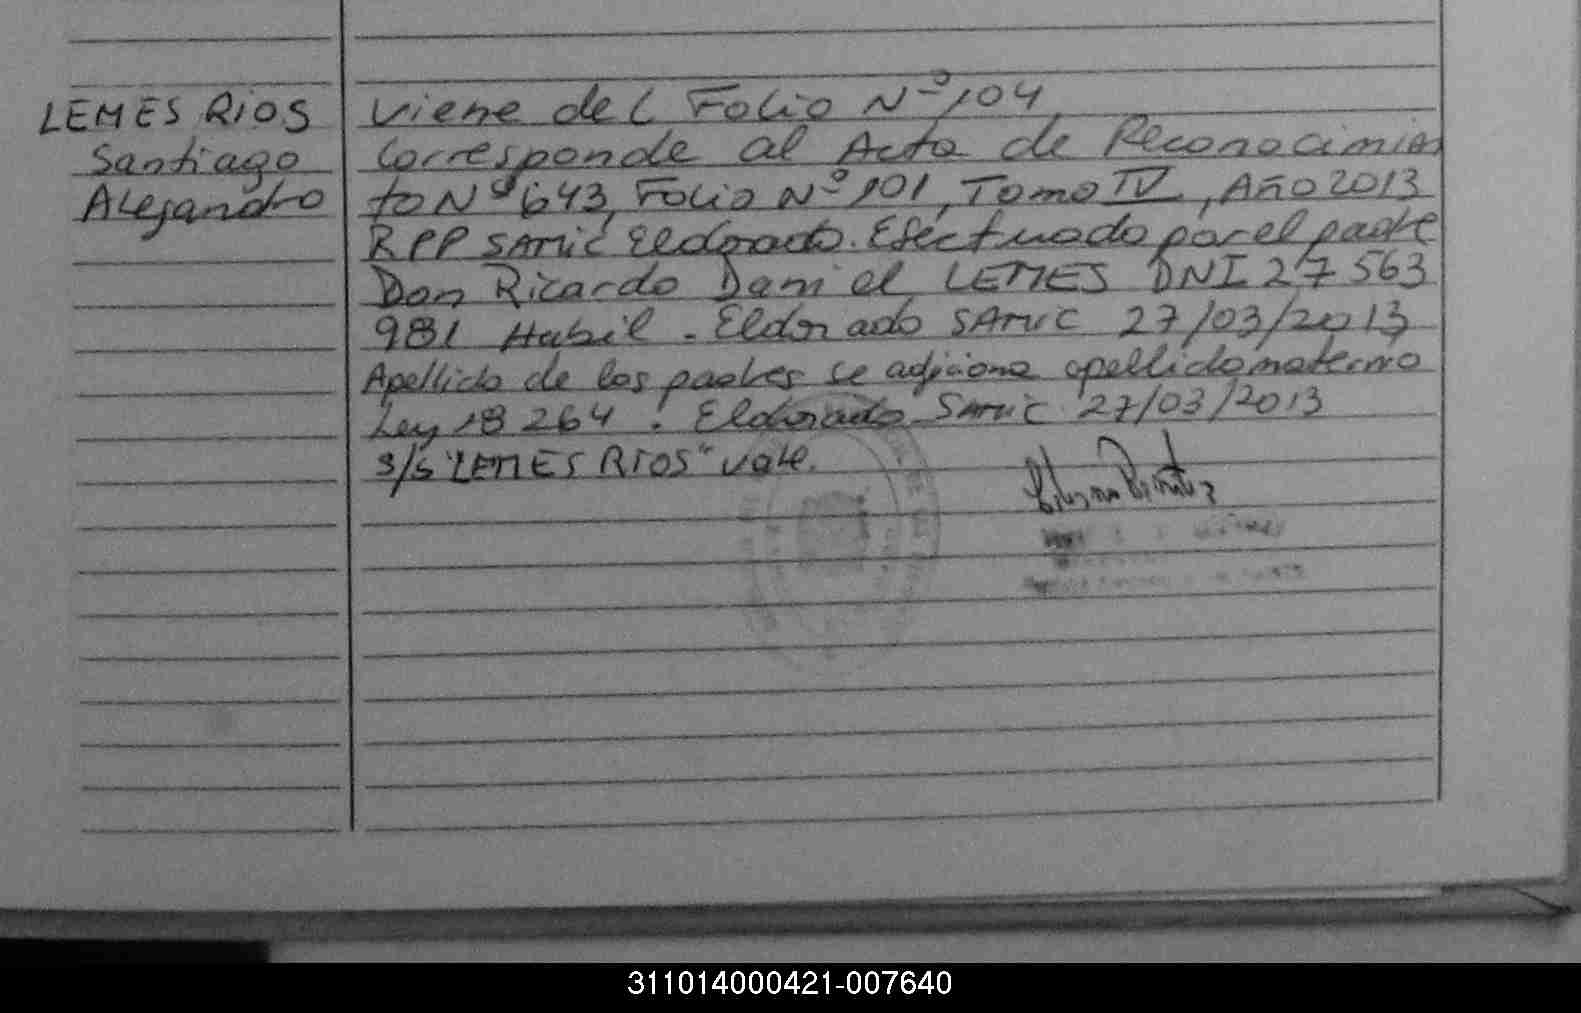 LEMES RIOS
Santiago
Alejandro
Viene del Folio Nº 104
Corresponde al Acta de Reconocimien
to Nº 643, Folio Nº 101, Tomo IV, Año 2013
RPP SAMIC Eldorado. Efectuado por el padre
Don Ricardo Daniel LEMES DNI 27 563
981 Habil - Eldorado SAMIC 27/03/2013
Apellido de los padres se adiciona apellido materno
Ley 18 264. Eldorado SAMIC 27/03/2013
s/s "LEMES RIOS" vale.
311014000421-007640